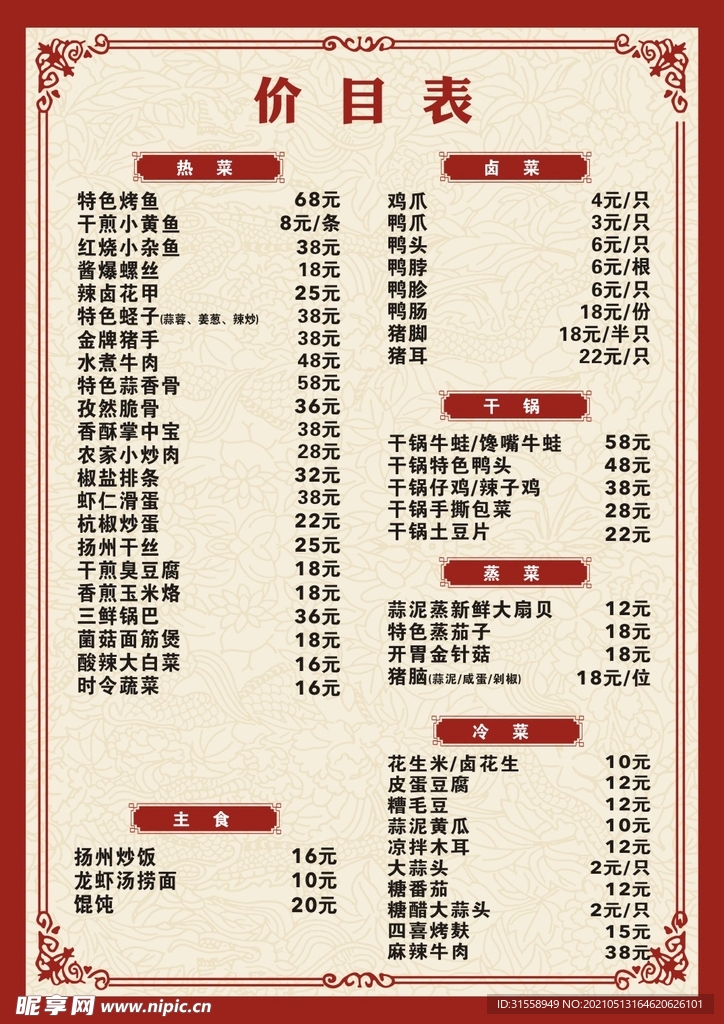 价目表
热菜
特色烤鱼 68元
干煎小黄鱼 8元/条
红烧小杂鱼 38元
酱爆螺丝 18元
辣卤花甲 25元
特色蛏子(蒜蓉、姜葱、辣炒) 38元
金牌猪手 38元
水煮牛肉 48元
特色蒜香骨 58元
孜然脆骨 36元
香酥掌中宝 38元
农家小炒肉 28元
椒盐排条 32元
虾仁滑蛋 38元
杭椒炒蛋 22元
扬州干丝 25元
干煎臭豆腐 18元
香煎玉米烙 18元
三鲜锅巴 36元
菌菇面筋煲 18元
酸辣大白菜 16元
时令蔬菜 16元
主食
扬州炒饭 16元
龙虾汤捞面 10元
馄饨 20元
卤菜
鸡爪 4元/只
鸭爪 3元/只
鸭头 6元/只
鸭脖 6元/根
鸭胗 6元/只
鸭肠 18元/份
猪脚 18元/半只
猪耳 22元/只
干锅
干锅牛蛙/馋嘴牛蛙 58元
干锅特色鸭头 48元
干锅仔鸡/辣子鸡 38元
干锅手撕包菜 28元
干锅土豆片 22元
蒸菜
蒜泥蒸新鲜大扇贝 12元
特色蒸茄子 18元
开胃金针菇 18元
猪脑(蒜泥/咸蛋/剁椒) 18元/位
冷菜
花生米/卤花生 10元
皮蛋豆腐 12元
糟毛豆 12元
蒜泥黄瓜 10元
凉拌木耳 12元
大蒜头 2元/只
糖番茄 12元
糖醋大蒜头 2元/只
四喜烤麸 15元
麻辣牛肉 38元
昵享网 www.nipic.cn
ID:31558949 NO:20210513164620626101